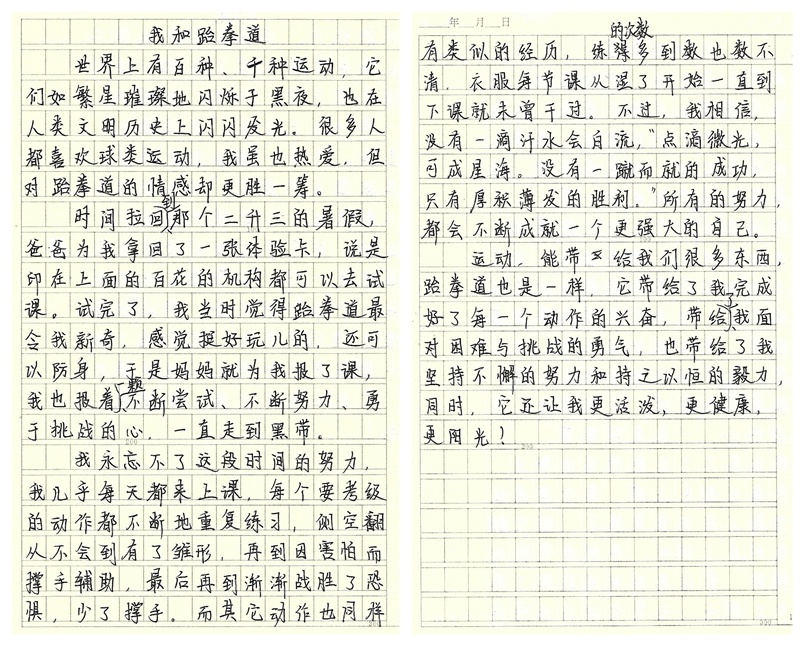 我和跆拳道
世界上有百种、千种运动，它
们如繁星璀璨地闪烁于黑夜，也在
人类文明历史上闪闪发光。很多人
都喜欢球类运动，我虽也热爱，但
对跆拳道的情感却更胜一筹。
时间拉回到那个二升三的暑假，
爸爸为我拿回了一张体验卡，说是
印在上面的百花的机构都可以去试
课。试完了，我当时觉得跆拳道最
令我新奇，感觉挺好玩儿的，还可
以防身，于是妈妈就为我报了课，
我也报着一颗不断尝试、不断努力、勇
于挑战的心，一直走到黑带。
200
我永忘不了这段时间的努力，
我几乎每天都来上课，每个要考级
的动作都不断地重复练习，侧空翻
从不会到有了雏形，再到因害怕而
撑手辅助，最后再到渐渐战胜了恐
惧，少了撑手。而其它动作也同样
年 月 日
有类似的经历，练得多到的次数数也数不
清，衣服每节课从湿了开始一直到
下课就未曾干过。不过，我相信，
没有一滴汗水会白流，“点滴微光，
可成星海。没有一蹴而就的成功，
只有厚积薄发的胜利。”所有的努力，
都会不断成就一个更强大的自己。
运动，能带给我们很多东西，
跆拳道也是一样，它带给了我完成
好了每一个动作的兴奋，带给了我面
对困难与挑战的勇气，也带给了我
坚持不懈的努力和持之以恒的毅力，
同时，它还让我更活泼，更健康，
更阳光！